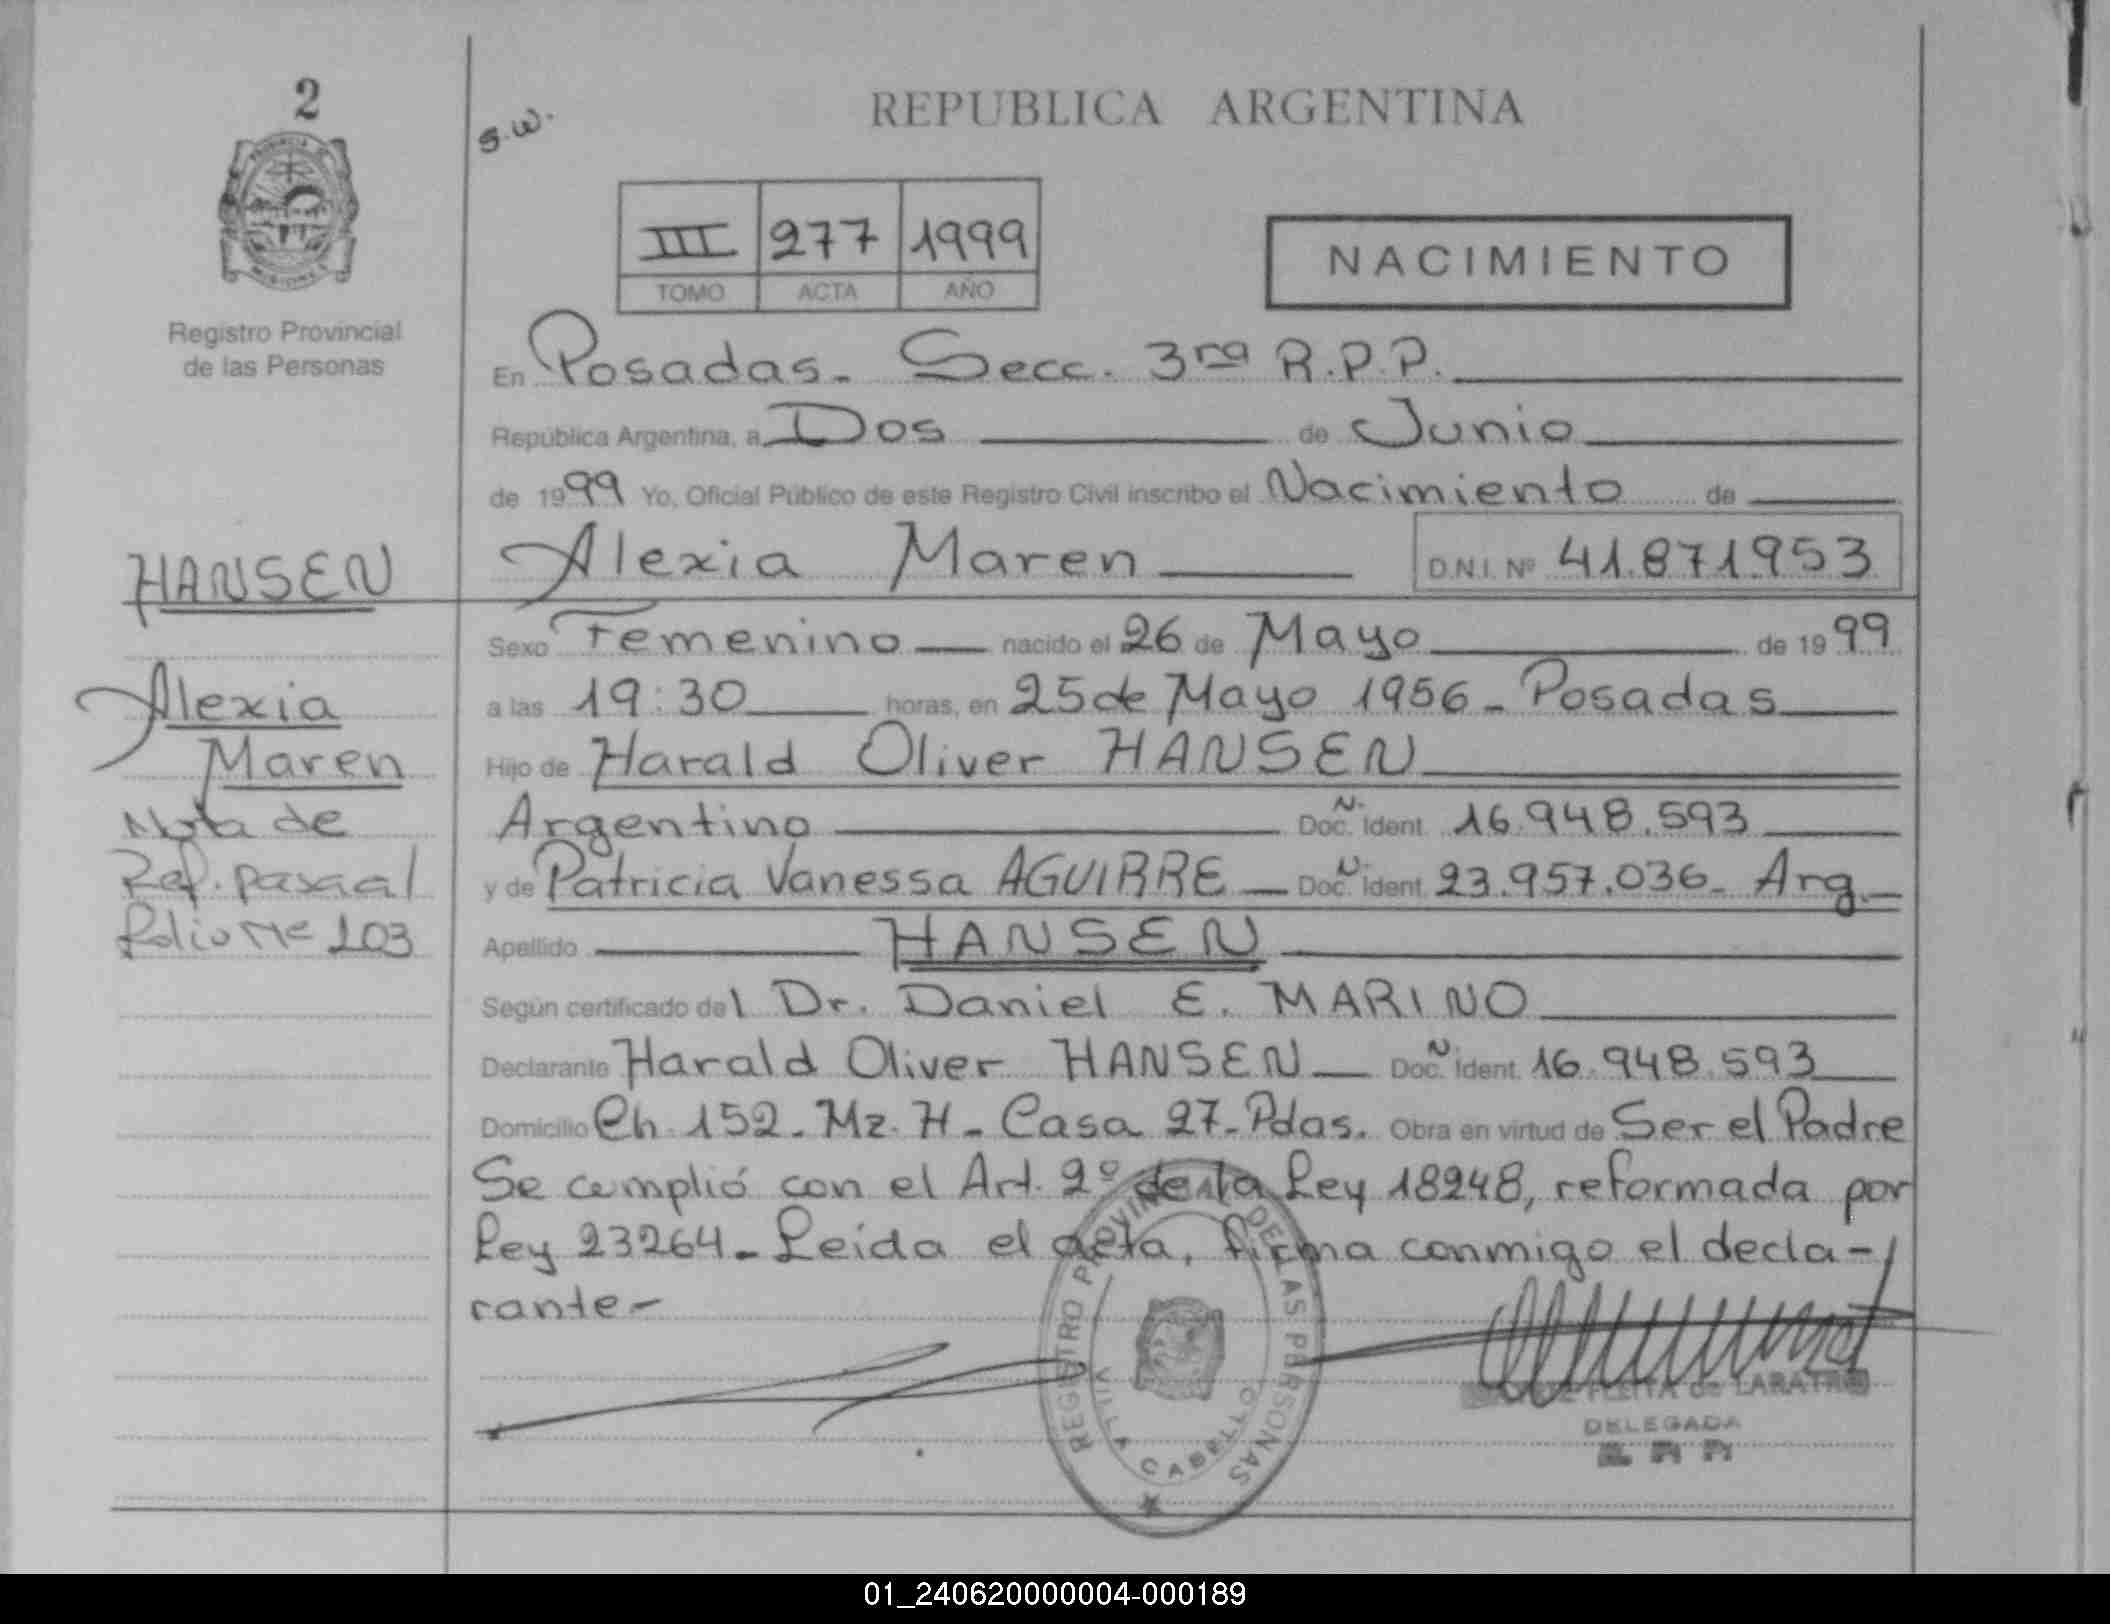 2
s.w.
REPUBLICA ARGENTINA
III 277 1999
TOMO ACTA AÑO
NACIMIENTO
Registro Provincial
de las Personas
En Posadas- Secc. 3ra R.P.P.
República Argentina, a Dos de Junio
de 1999 Yo, Oficial Público de este Registro Civil inscribo el Nacimiento de
Alexia Maren D.N.I. Nº 41.871.953
Sexo Femenino nacido el 26 de Mayo de 1999
a las 19:30 horas, en 25 de Mayo 1956- Posadas
Hijo de Harald Oliver HANSEN
Argentino Doc. N. Ident. 16.948.593
y de Patricia Vanessa AGUIRRE Doc. N. Ident. 23.957.036- Arg.
Apellido HANSEN
Según certificado del Dr. Daniel E. MARINO
Declarante Harald Oliver HANSEN Doc. N. Ident. 16.948.593
Domicilio Ch. 152- Mz. H- Casa 27- Pdas. Obra en virtud de Ser el Padre
Se cumplió con el Art. 2º de la Ley 18248, reformada por
Ley 23264- Leída el acta, firma conmigo el decla-
rante-
HANSEN
Alexia
Maren
Nota de
Ref.
folio Nº 103
REGISTRO PROVINCIAL DE LAS PERSONAS
VILLA CABELLO
de LABATRO
DELEGADA
01_240620000004-000189